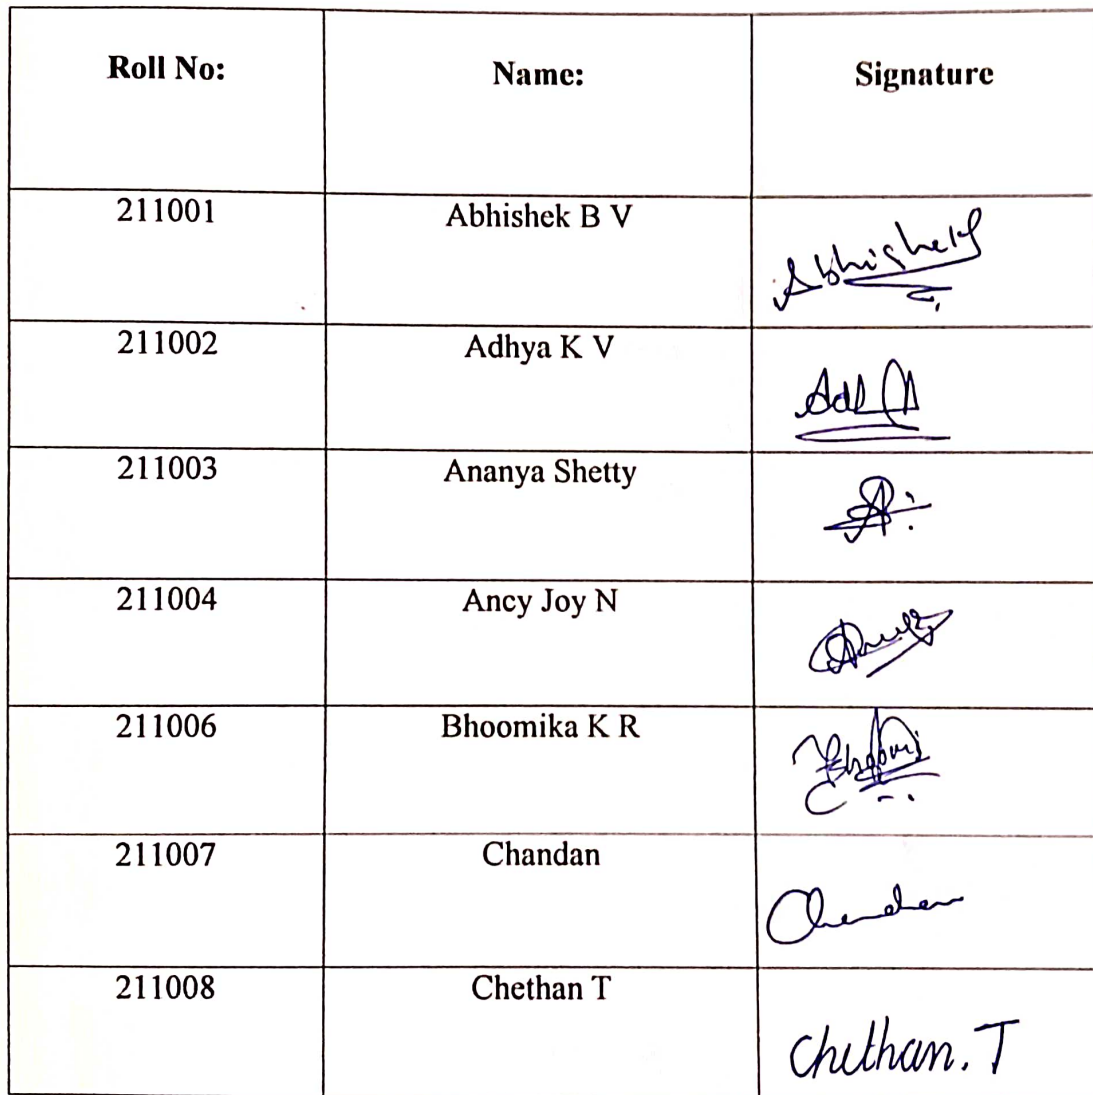 Roll No: Name: Signature
211001 Abhishek B V Abhishek
211002 Adhya K V
211003 Ananya Shetty
211004 Ancy Joy N
211006 Bhoomika K R
211007 Chandan Chandan
211008 Chethan T Chethan. T